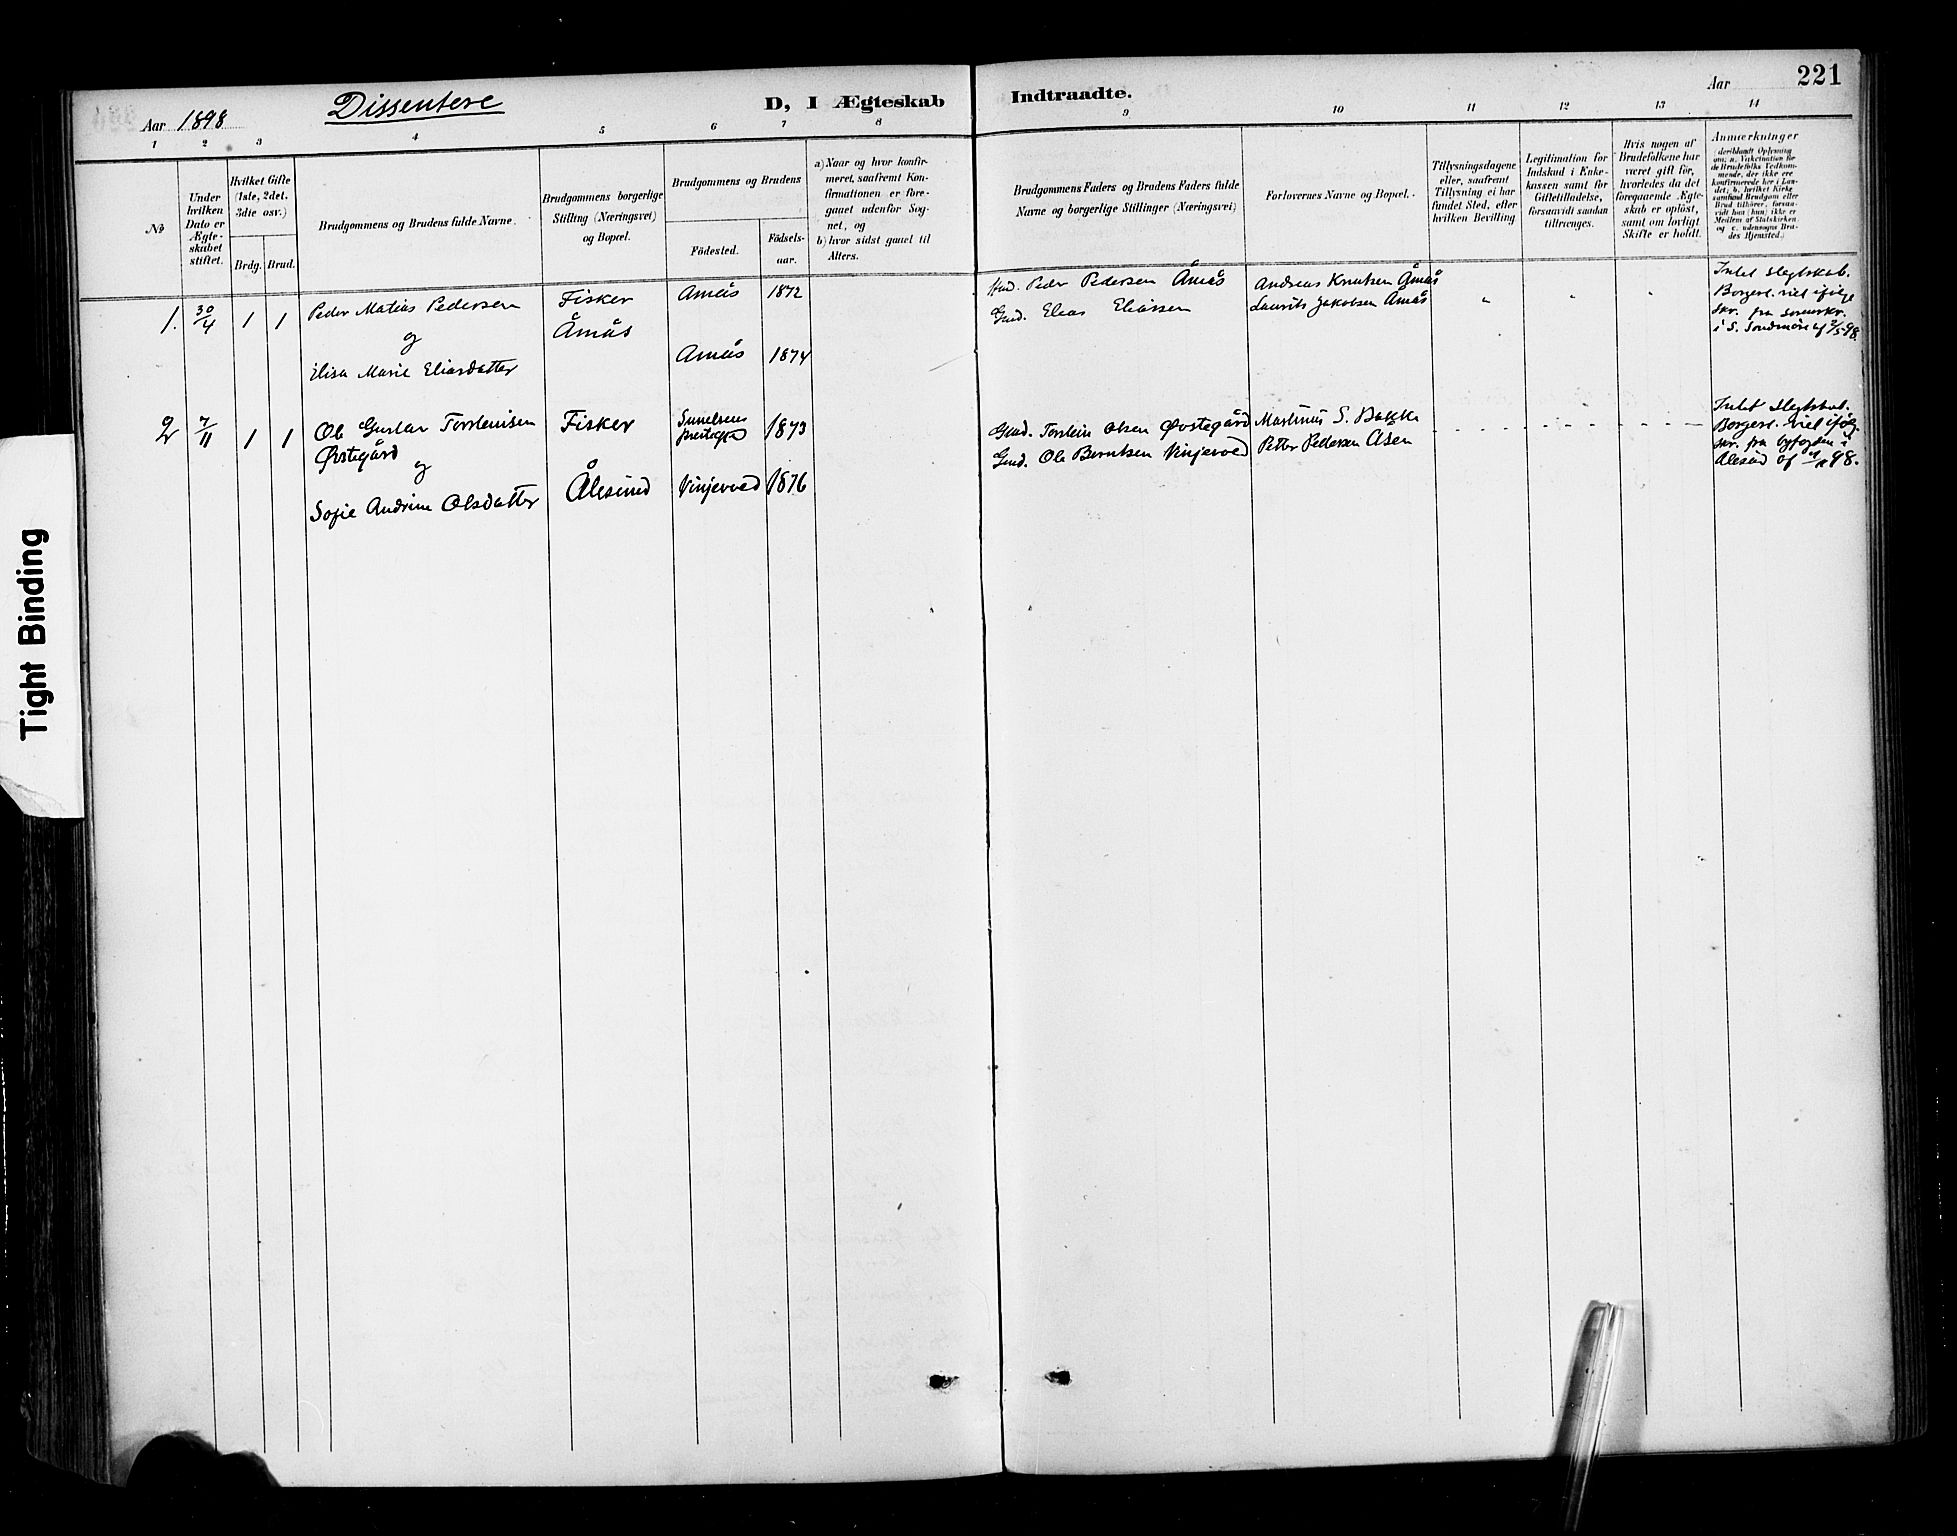 221
Aar 1898
Dissentere
D, I Ægteskab Indtraadte.
Aar
1 2 3 4 5 6 7 8 9 10 11 12 13 14
No
Under hvilken Dato er Ægteskabet stiftet.
Hvilket Gifte (1ste, 2det, 3die osv.)
Brdg. Brud.
Brudgommens og Brudens fulde Navne.
Brudgommens borgerlige Stilling (Næringsvei) og Bopæl.
Brudgommens og Brudens
Födested.
Födselsaar.
a) Naar og hvor konfirmeret, saafremt Konfirmationen er foregaaet udenfor Sognet, og
b) hvor sidst gaaet til Alters.
Brudgommens Faders og Brudens Faders fulde Navne og borgerlige Stillinger (Næringsvei)
Forlovernes Navne og Bopæl.
Tillysningsdagene eller, saafremt Tillysning ei har fundet Sted, efter hvilken Bevilling
Legitimation for Indskud i Enkekassen samt for Giftetilladelse, forsaavidt saadan tiltrænges.
Hvis nogen af Brudefolkene har været gift för, hvorledes da det foregaaende Ægteskab er oplöst, samt om lovligt Skifte er holdt.
Anmærkninger (deriblandt Oplysning om: a. Vakcination for de Brudefolks Vedkommende, der ikke ere konfirmerede her i Landet; b. hvilket Kirkesamfund Brudgom eller Brud tilhörer, forsaavidt han (hun) ikke er Medlem af Statskirken, og c. udensogns Brudes Hjemsted.)
1. 30/4 1 1 Peder Matias Pedersen
og
Elisa Marie Eliasdatter
Fisker
Åmås
Amås 1872
Amås 1874
Peder Pedersen Åmås
Gmd. Elias Eliassen
Andreas Knutsen Åmås
Laurits Jakobsen Åmås
" " "
Intet slegtskab.
Borgerl. viet ifölge
skr. fra sorenskr.
i S. Søndmöre af 2/5 98.
2 7/11 1 1 Ole Gustav Torsteinsen
Øvstegård
og
Sofie Andrine Olsdatter
Fisker
Ålesund
1873
Vinjevoed 1876
Gmd. Torstein Olsen Øvstegård
Gmd. Ole Berntsen Vinjevoed
Martinus S. Bakke
Petter Pettersen Åsen
Intet slegtskab.
Borgerl. viet ifölg.
skr. fra byfogden i
Ålesund af 98.
Tight Binding